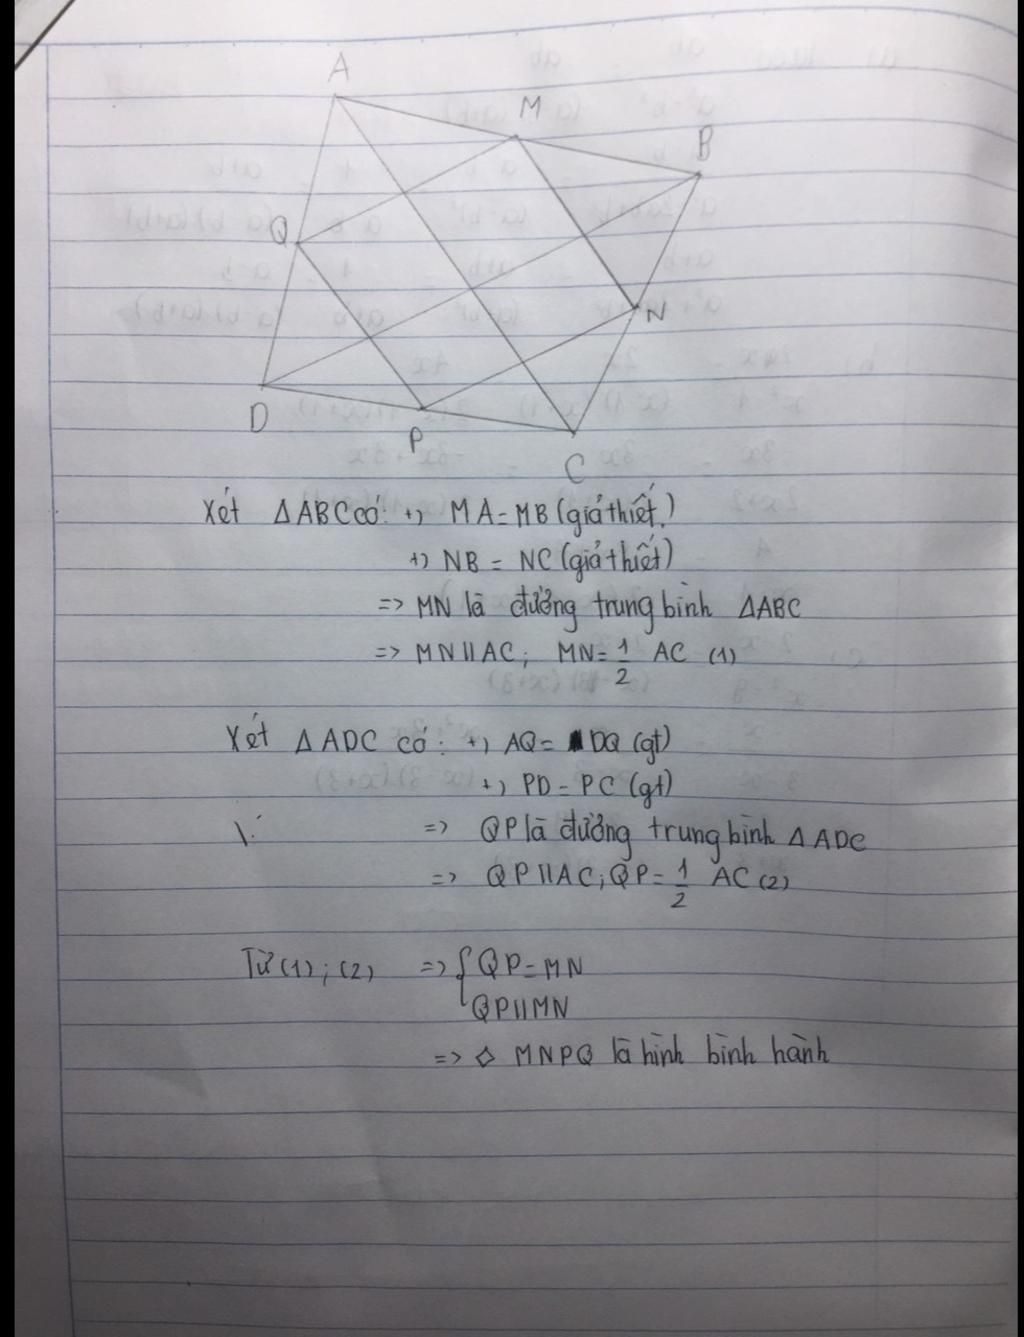 A
M
B
Q
N
D
P
C
Xét ΔABC có: +) MA = MB (giả thiết)
+) NB = NC (giả thiết)
=> MN là đường trung bình ΔABC
=> MN // AC; MN = 1/2 AC (1)
Xét ΔADC có: +) AQ = DQ (gt)
+) PD = PC (gt)
=> QP là đường trung bình ΔADC
=> QP // AC; QP = 1/2 AC (2)
Từ (1); (2) => { QP = MN
QP // MN
=> ◇ MNPQ là hình bình hành